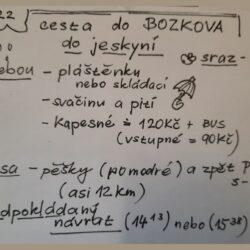 22 cesta do BOZKOVA
do jeskyní
sraz -
ebou - pláštěnku
nebo skládací
- svačinu a pití
- kapesné = 120Kč + BUS
(vstupné = 90Kč)
sa - pěšky (po modré) a zpět P
s-
(asi 12 km)
dpokládaný
návrat (14¹³) nebo (15³⁸)